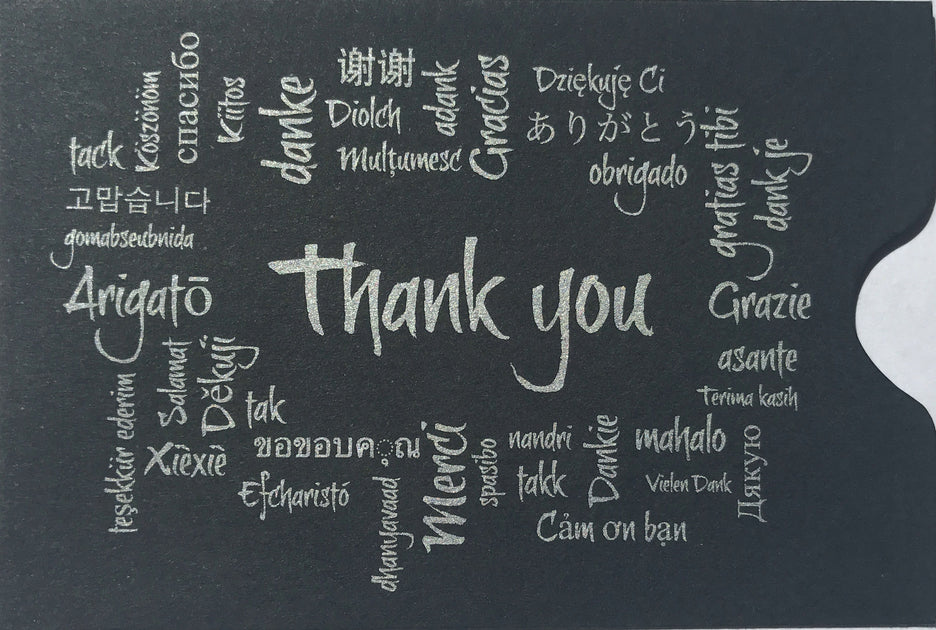 спасибо
Köszönöm
tack
Kiitos
danke
谢谢
Diolch
Mulțumesc
adank
Gracias
Dziękuję Ci
ありがとう
obrigado
gratias tibi
dank je
고맙습니다
gomabseubnida
Arigatō
Thank you
Grazie
asante
Terima kasih
teşekkür ederim
Salamat
Děkuji
tak
Xièxiè
ขอขอบคุณ
Efcharistó
dhanyavaad
Merci
spasibo
nandri
takk
Dankie
mahalo
Vielen Dank
Дякую
Cảm ơn bạn